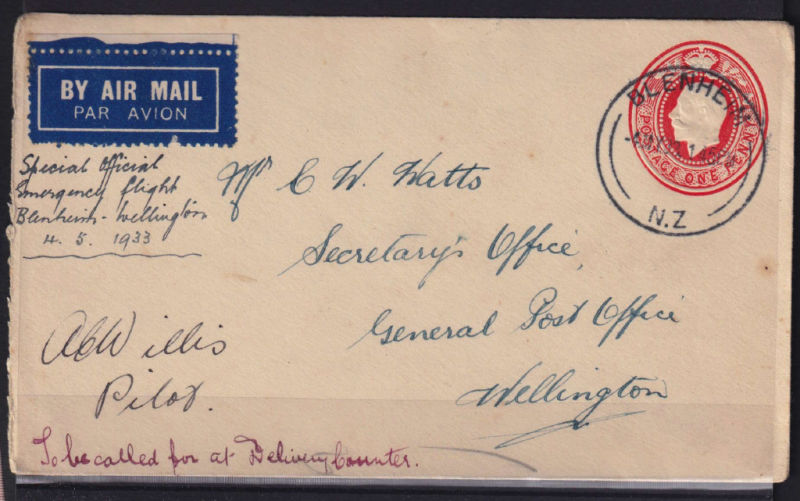 BY AIR MAIL
PAR AVION
Special Official
Emergency flight
Blenheim - Wellington
4. 5. 1933
Mr C. W. Watts
Secretary's Office,
General Post Office
Wellington
A C Willis
Pilot.
To be called for at Delivery Counter.
BLENHEIM
N.Z
POSTAGE ONE PENNY